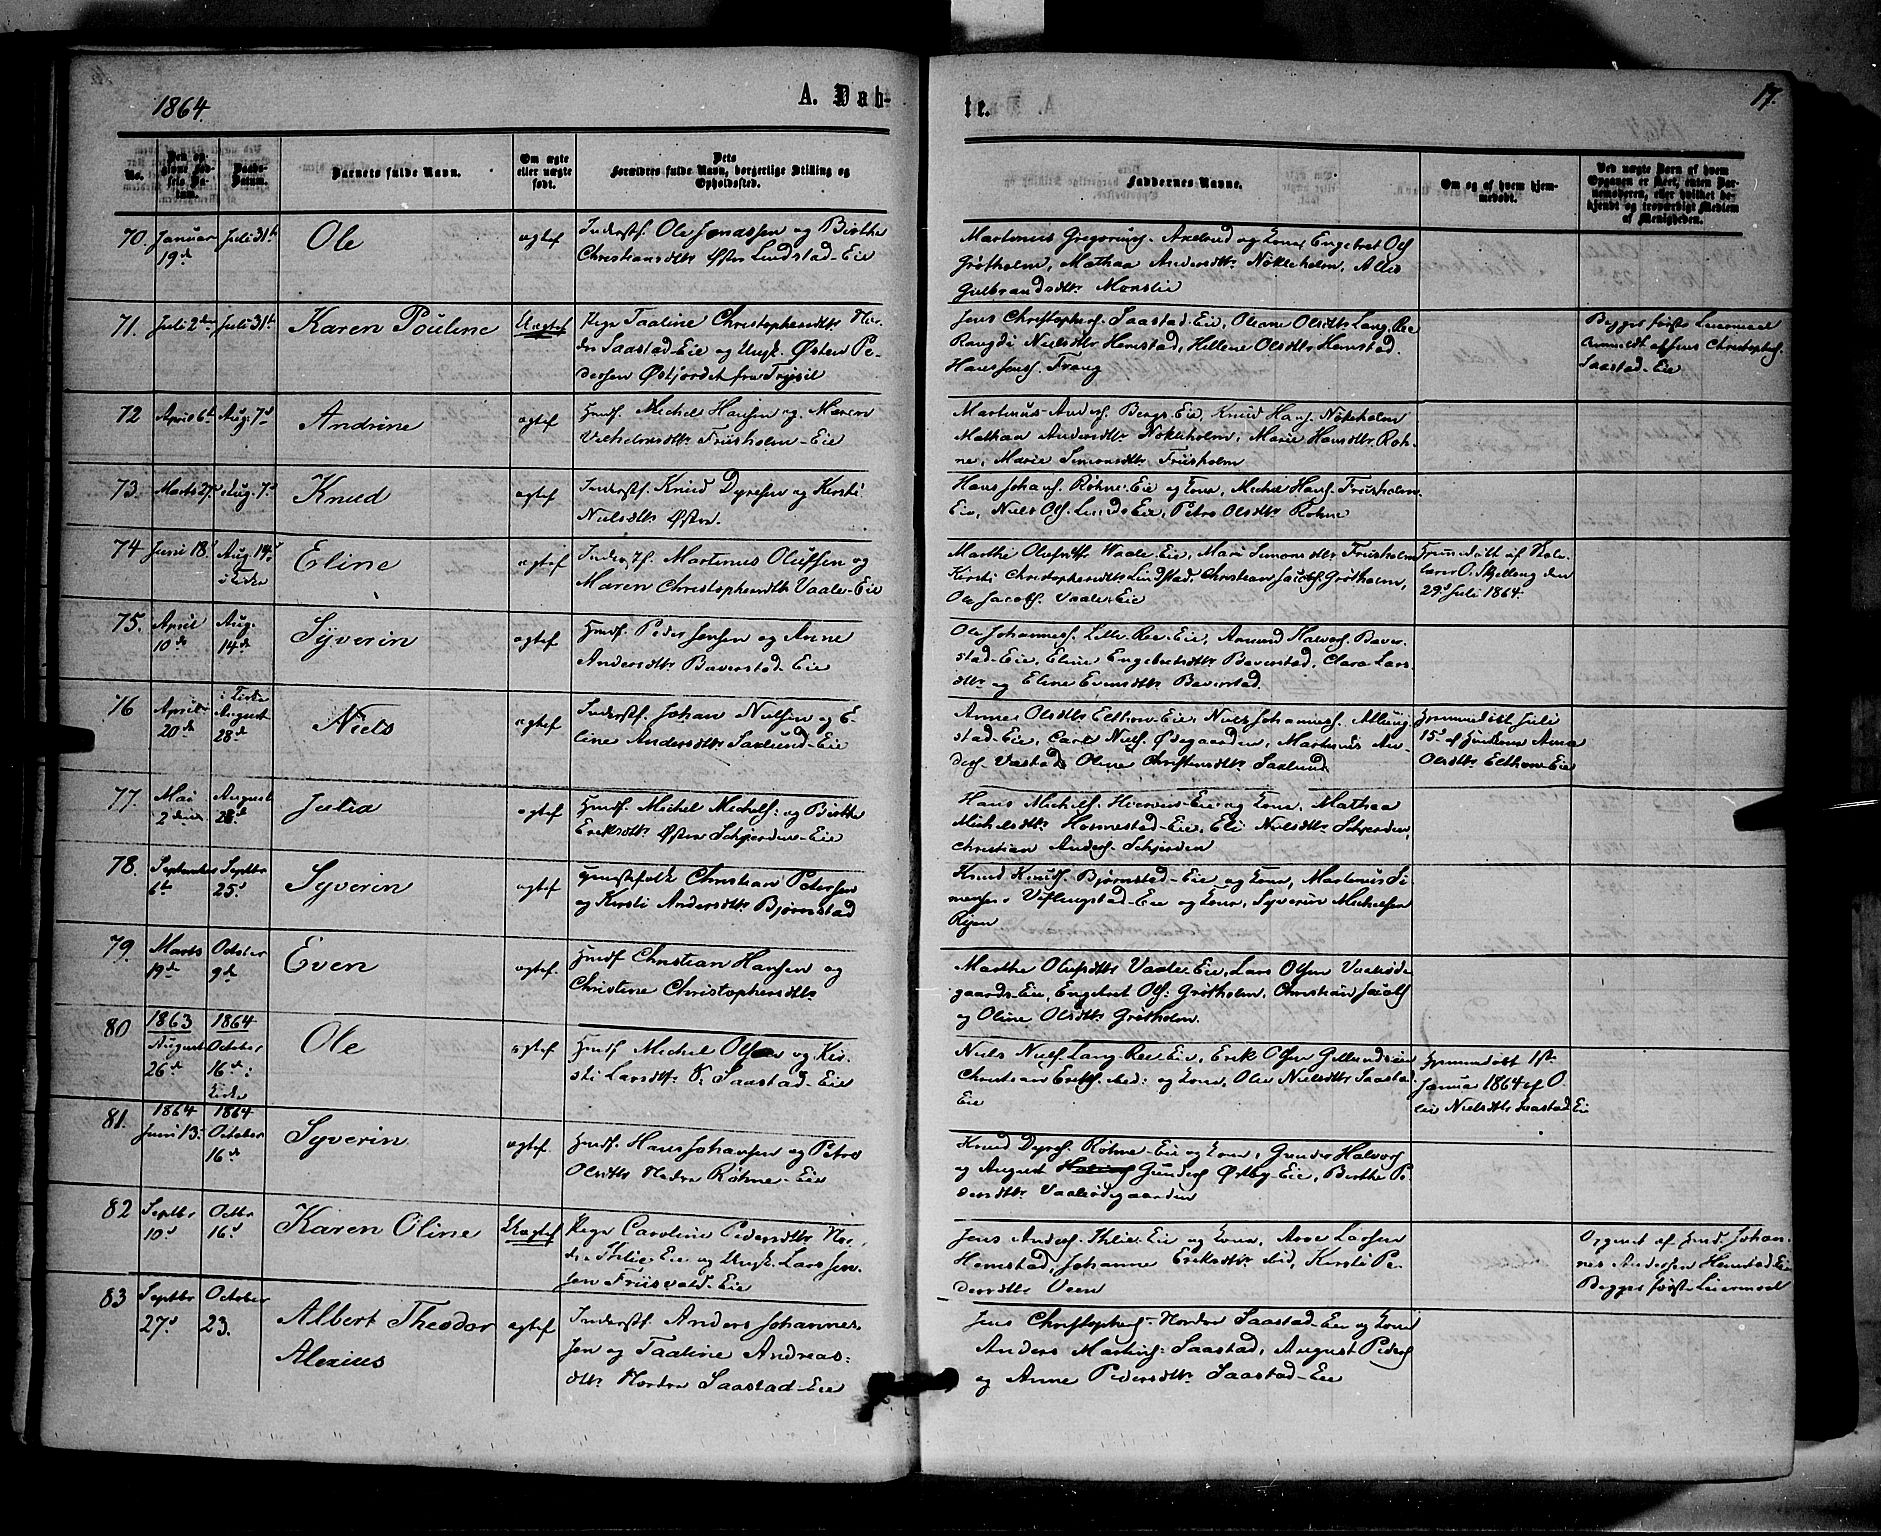 1864.
A. Dab-
te.
17.
No.
Den og
hvor fød-
sels Da-
tum.
Daabs-
Datum.
Barnets fulde Navn.
Om ægte
eller uægte
født.
Dets
Forældres fulde Navn, borgerlige Stilling og
Opholdssted.
Faddernes Navne.
Om og af hvem hjem-
medøbt.
Ved uægte Barn af hvem
Opgaven er skeet, enten Bar-
nemoderen, eller hvilket be-
kjendt og troværdigt Medlem
af Menigheden.
70. Januar 19de Juli 31te Ole ægtef Inderstf. Ole Jonassen og Birthe
Christiansdtr Østre Lindstad-Eie
Martinus Gregoriusf. Axelrud og Kone Engebret Ols
Grøtholm, Mathea Andersdtr Nokleholm, Alis
Gulbrandsdtr Monslie
71. Juli 2den Juli 31te Karen Pouline Uægtef Pige Taaline Christophersdtr Ne-
dre Saastad-Eie og Ungk. Østen Pe-
dersen Østfordet fra Trysil
Jens Christophers. Saastad-Eie, Oleane Olsdtr Lang-Ree
Rangdi Nielsdtr Hemstad, Hellene Olsdtr Hemstad.
Hans Jensf. Frang
Begges første Leiermaal
Anmeldt af Jens Christophers.
Saastad-Eie
72 April 6te Aug. 7de Andrine ægtef Huusf. Michel Hansen og Maren
Vilhelmsdtr Friisholm-Eie
Martinus Anders. Bergs-Eie, Knud Hans. Nokleholm
Mathea Andersdtr Nokleholm, Marie Hansdtr Roh-
ne, Marie Simonsdtr Friisholm
73. Marts 27de Aug. 7de Knud ægtef Inderstf. Knud Dyresen og Kirsti
Nielsdtr Østre.
Hans Johans. Røhne-Eie og Kone, Michel Hans. Friisholm
Eie, Niels Ols. Linds Eie, Petra Olsdtr Røhne
74 Juni 18. Aug. 14de i Kirken Eline ægtef Inderstf. Martinus Olufsen og
Maren Christophersdtr Vaale-Eie
Marthe Olufsdtr Vaale-Eie, Mari Simonsdtr Friisholm
Kirsti Christophersdtr Lindstad, Christian Jacobs. Grøtholm,
Ole Jacobs. Vaale-Eie
Hjemmedøbt af Skole-
lærer O. Skjelleng den
29de Juli 1864.
75. April 10de Aug. 14de Syverin ægtef Huusf. Peder Jensen og Anne
Andersdtr Baverstad-Eie
Ole Johannes. Lille-Ree-Eie, Amund Halvors. Baver-
stad-Eie, Eline Engebretsdtr Baverstad, Clara Lars-
dtr og Eline Evensdtr Baverstad.
76 April 20de i Kirken August 28de Niels ægtef Inderstf. Johan Nielsen og E-
line Andersdtr Saxlund-Eie
Anne Olsdtr Elthon-Eie, Niels Johannes. Alling-
stad-Eie, Carl Niels. Ødegaarden, Martinus An-
ders. Vastad, Oline Christiansdtr Saxlund
Hjemmedøbt Juli
15de af Huuskone Anne
Olsdtr Elthon-Eie
77. Mai 2den August 28de Julia ægtef Huusf. Michel Michels. og Birthe
Eriksdtr Østre Schjerden-Eie
Hans Michels. Hverven-Eie og Kone, Mathea
Michelsdtr Hommestad-Eie, Eli Nielsdtr Schjerden,
Christian Anders. Schjerden
78. September 6te Septbr 25de Syverin ægtef Huusfolk Christian Petersen
og Kirsti Andersdtr Bjørnstad
Knud Knuds. Bjørnstad-Eie og Kone, Martinus Si-
mensen Viflingstad-Eie og Kone, Syverin Michelsen
Rysen
79. Marts 19de October 9de Even ægtef Huusf. Christian Hansen og
Christine Christophersdtr
Marthe Olufsdtr Vaale-Eie, Lars Olsen Vaaleøde-
gaards-Eie, Engebret Ols. Grøtholm, Christian Jacobs.
og Oline Olsdtr Grøtholm.
80 1863 August 26de 1864 October 16de i Kirke Ole ægtef Huusf. Michel Olsen og Kir-
sti Larsdtr S. Saastad-Eie
Niels Niels. Lang-Ree-Eie, Erik Olsen Gillundseie
Christian Eriks. ibid: og Kone, Olea Nielsdtr Saastad
Eie
Hjemmedøbt 1ste
Januar 1864 af O-
lea Nielsdtr Saastad Eie
81. 1864 Juni 13. 1864 October 16de Syverin ægtef Huusf. Hans Johansen og Petra
Olsdtr Nedre Røhne-Eie
Knud Dyres. Røhne-Eie og Kone, Gunder Halvors.
og August Gunders. Østby-Eie, Berthe Pe-
dersdtr Vaaleødegaarden
82 Septbr 10de Octbr 16de Karen Oline Uægtef Pige Caroline Pedersdtr Ne-
dre Thlie Eie og Ungk. Lars Jen-
sen Friisvold-Eie
Jens Anders. Thlie-Eie og Kone, Arne Larsen
Hemstad, Johanne Eriksdtr ibid, Kirsti Pe-
dersdtr Veen
Opgivet af Huusf. Johan-
nes Andersen Hemstad-Eie
Begges første Leiermaal
83 Septbr 27de October 23. Albert Theodor
Alexius ægtef Inderstf. Anders Johannes-
sen og Taaline Andreas-
dtr Nordre Saastad-Eie
Jens Christophers. Nordre Saastad-Eie og Kone
Anders Martins. Saastad, August Peders.
og Anne Pedersdtr Saastad-Eie